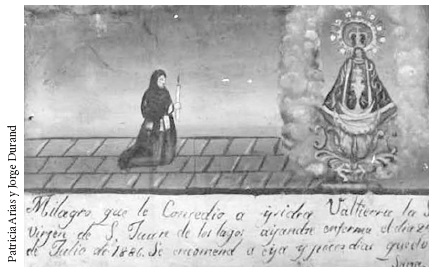 Patricia Arias y Jorge Durand
Milagro, que le Consedio a ysidra Valtierra la S
virgen de S. Juan de los lagos ayandose enferma el dia 2
de Julio de 1886. Se encomend a eya y pocos dias quedo
Sana.